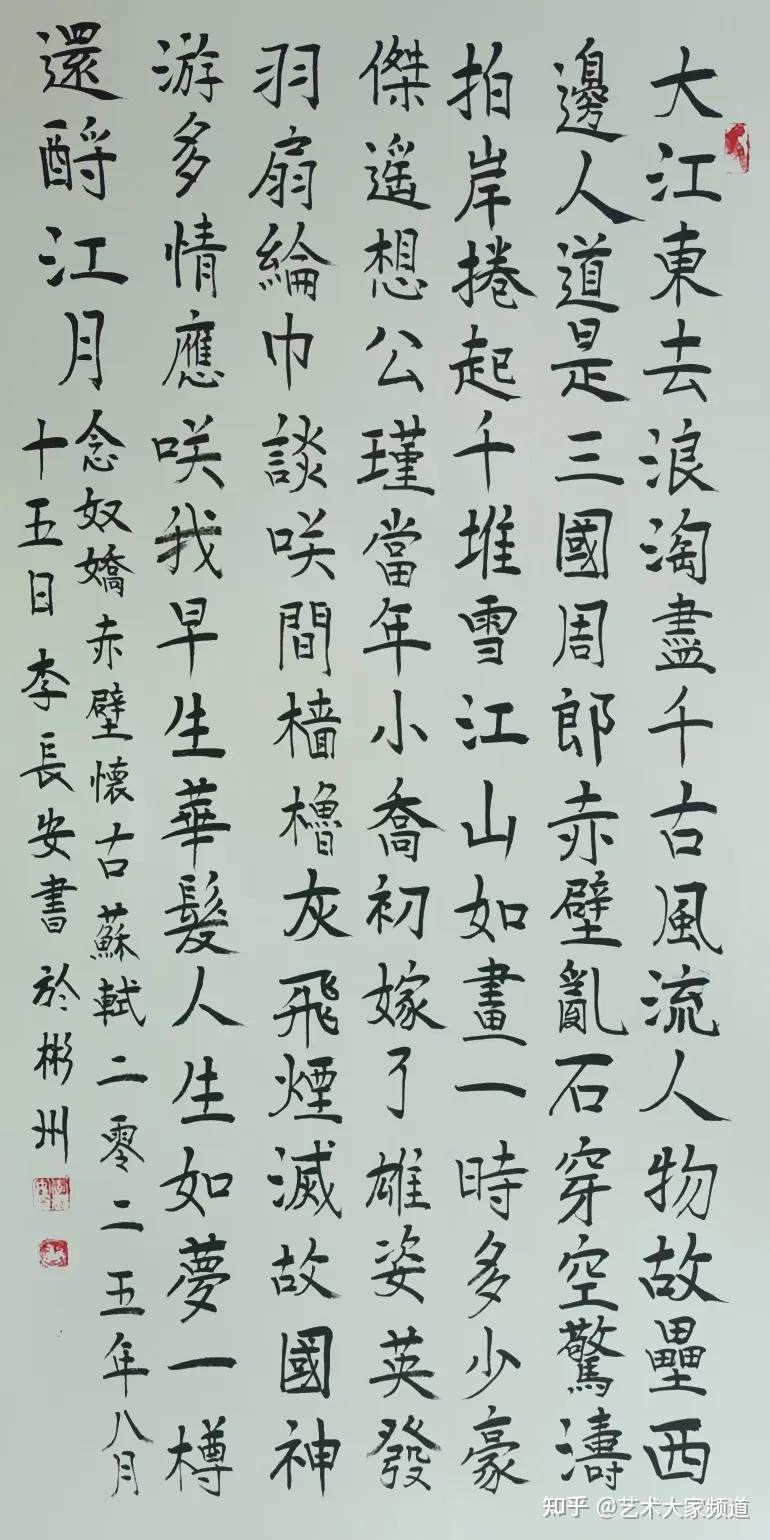 大江東去浪淘盡千古風流人物故壘西
邊人道是三國周郎赤壁亂石穿空驚濤
拍岸捲起千堆雪江山如畫一時多少豪
傑遥想公瑾當年小喬初嫁了雄姿英發
羽扇綸巾談咲間檣櫓灰飛煙滅故國神
游多情應咲我早生華髮人生如夢一樽
還酹江月
念奴嬌赤壁懷古蘇軾二零二五年八月
十五日李長安書於彬州
知乎 @艺术大家频道